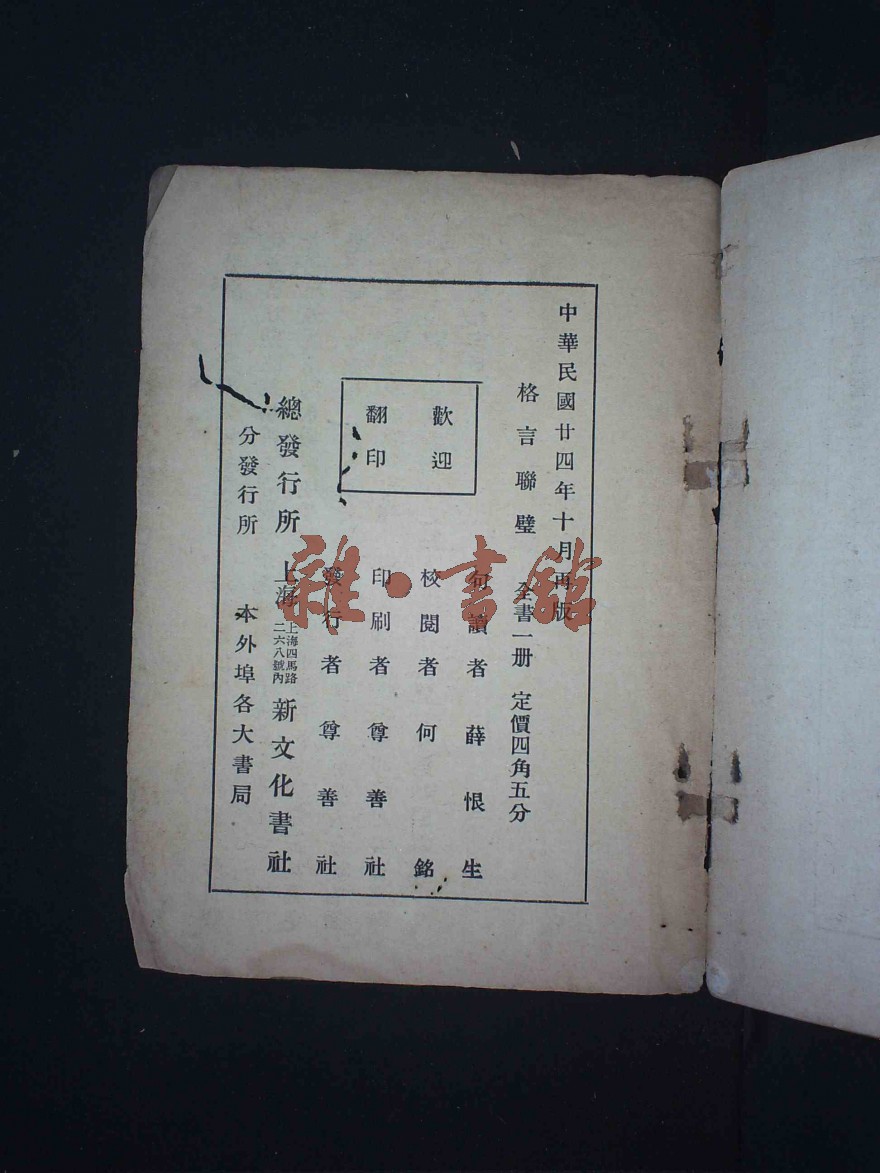 中華民國廿四年十月再版
格言聯璧 全書一册 定價四角五分
句讀者 薛恨生
校閱者 何銘
印刷者 尊善社
發行者 尊善社
歡迎
翻印
總發行所 上海 上海四馬路二六八號內 新文化書社
分發行所 本外埠各大書局
雜·書館